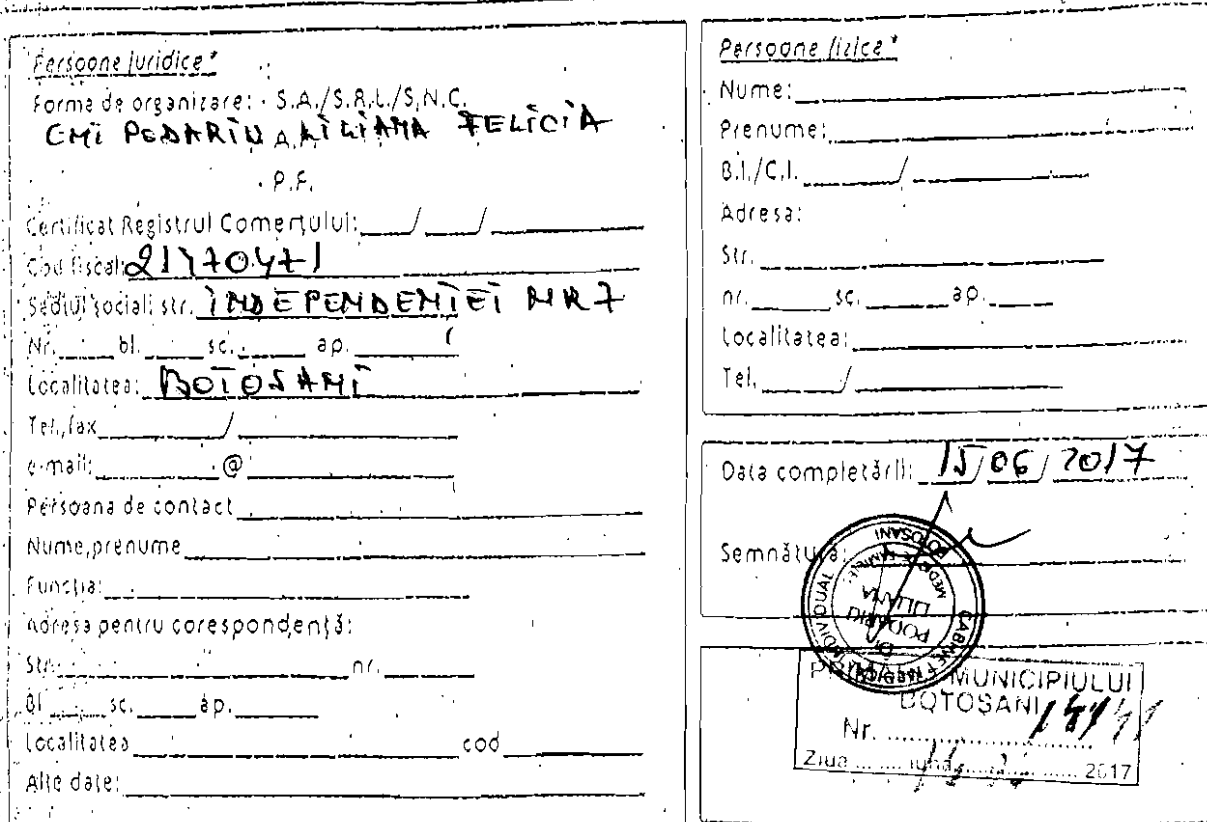 Persoane juridice*
Forma de organizare: · S.A./S.R.L./S.N.C.
CMI PODARIU LILIANA FELICIA
A.F.
· P.F.
Certificat Registrul Comerțului: ____/____/________
Cod fiscal: 21470471
Sediul social: str. INDEPENDENTEI NR 7
Nr. ____ bl. ____ sc. ____ ap. ______
Localitatea: BOTOSANI
Tel./fax ________/____________
e-mail: ________@____________
Persoana de contact ____________
Nume, prenume ____________
Funcția: ____________
Adresa pentru corespondență:
Str. ____________ nr. ______
Bl ____ sc. ____ ap. ______
Localitatea ____________ cod ________
Alte date: ____________
Persoane fizice*
Nume: ____________
Prenume: ____________
B.I./C.I. ________/____________
Adresa:
Str. ____________
nr. ____ sc. ____ ap. ____
Localitatea: ____________
Tel. ____/____________
Data completării: 15/06/2017
Semnătura: ____________
CABINET MEDICAL INDIVIDUAL
BOTOSANI
MEDIC FAMILIE
Dr.
PODARIU
LILIANA
MUNICIPIULUI
BOTOȘANI
Nr. ............
Ziua ........ luna ............ 2017